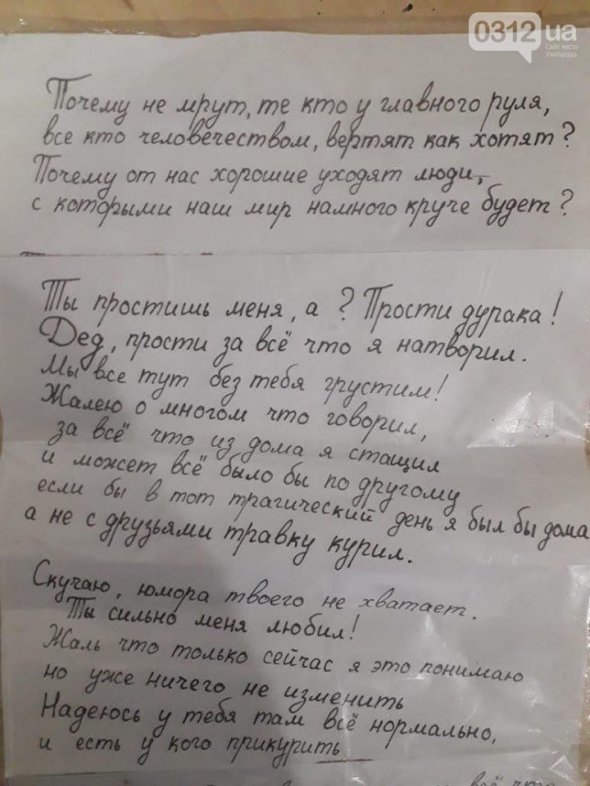 0312 ua
Сайт міста
Ужгорода
Почему не мрут, те кто у главного руля,
все кто человечеством, вертят как хотят?
Почему от нас хорошие уходят люди,
с которыми наш мир намного круче будет?
Ты простишь меня, а? Прости дурака!
Дед, прости за всё что я натворил.
Мы все тут без тебя грустим!
Жалею о многом что говорил,
за всё что из дома я стащил
и может всё было бы по другому
если бы в тот трагический день я был бы дома
а не с друзьями травку курил.
Скучаю, юмора твоего не хватает.
Ты сильно меня любил!
Жаль что только сейчас я это понимаю
но уже ничего не изменить
Надеюсь у тебя там всё нормально,
и есть у кого прикурить
всё что